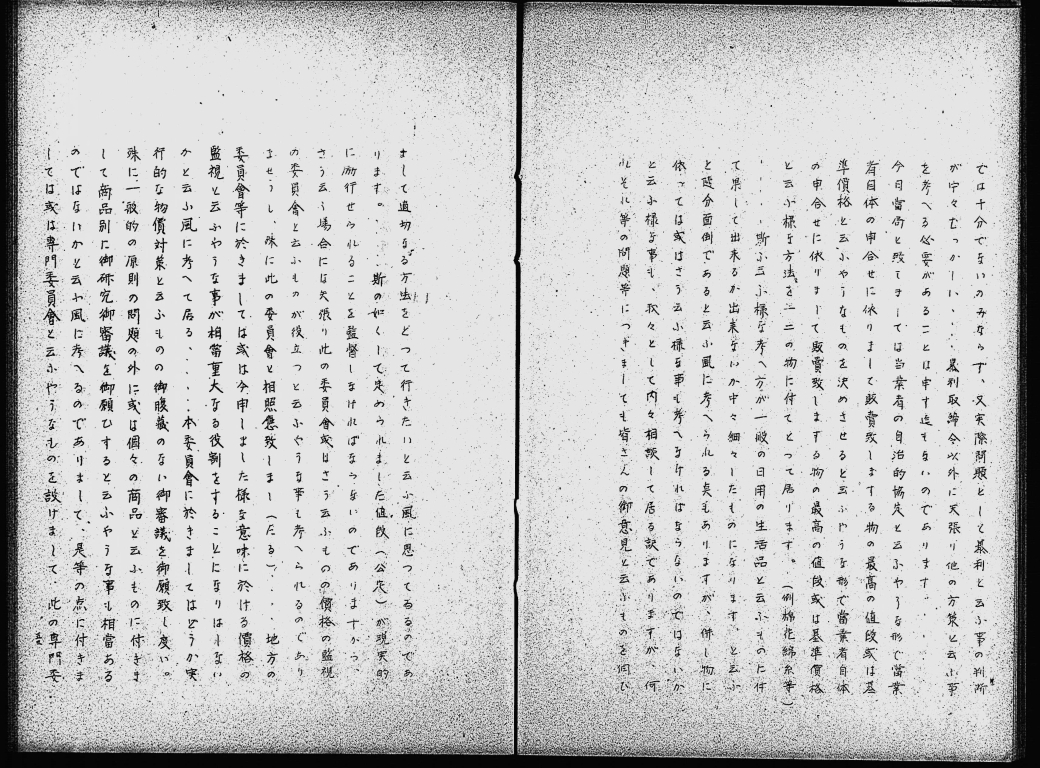 では十分でないのみならず、又実際問題として暴利と云ふ事の判断
が中々むつかしい、・・暴利取締令以外に矢張り他の方策と云ふ事
を考へる必要があることは申す迄もないのであります・・・
今日當局と致しましては当業者の自治的協定と云ふやうな形で當業
者自体の申合せに依りまして販賣致しまする物の最高の値段或は基
準價格と云ふやうなものを決めさせると云ふやうな形で當業者自体
の申合せに依りまして販賣致しまする物の最高の値段或は基準價格
と云ふ様な方法を一二の物に付てとつて居ります。(例綿花綿糸等)
・・・・斯う云ふ様な考へ方が一般の日用の生活品と云ふものに付
て果して出来るか出来ないか中々細々したものになります、と云ふ
と随分面倒であると云ふ風に考へられる点もありますが、併し物に
依つては或はさう云ふ様な事も考へなければならないのではないか
と云ふ様な事も、取々として内々相談して居る訳でありますが、何
れそれ等の問題等につきましても皆さんの御意見と云ふものを伺ひ
まして適切なる方法をとつて行きたいと云ふ風に思つてゐるのであ
ります。・・斯の如くして定められました値段(公定)が現実的
に励行せられることを監督しなければならないのでありますから、
さう云う場合には矢張り此の委員會或はさう云ふものの價格の監視
の委員會と云ふものが役立つと云ふやうな事も考へられるのであり
ませうし、殊に此の委員會と相照應致しまし(たる)・・地方の
委員會等に於きましては或は今申しました様な意味に於ける價格の
監視と云ふやうな事が相當重大なる役割をすることになりはしない
かと云ふ風に考へて居る、・・・・本委員會に於きましてはどうか実
行的な物價対策と云ふものの御腹蔵のない御審議を御願致し度い。
殊に一般的の原則の問題の外に或は個々の商品と云ふものに付きま
して商品別に御研究御審議を御願ひすると云ふやうな事も相當ある
のではないかと云ふ風に考へるのでありまして、是等の点に付きま
しては或は専門委員會と云ふやうなものを設けまして、此の専門委